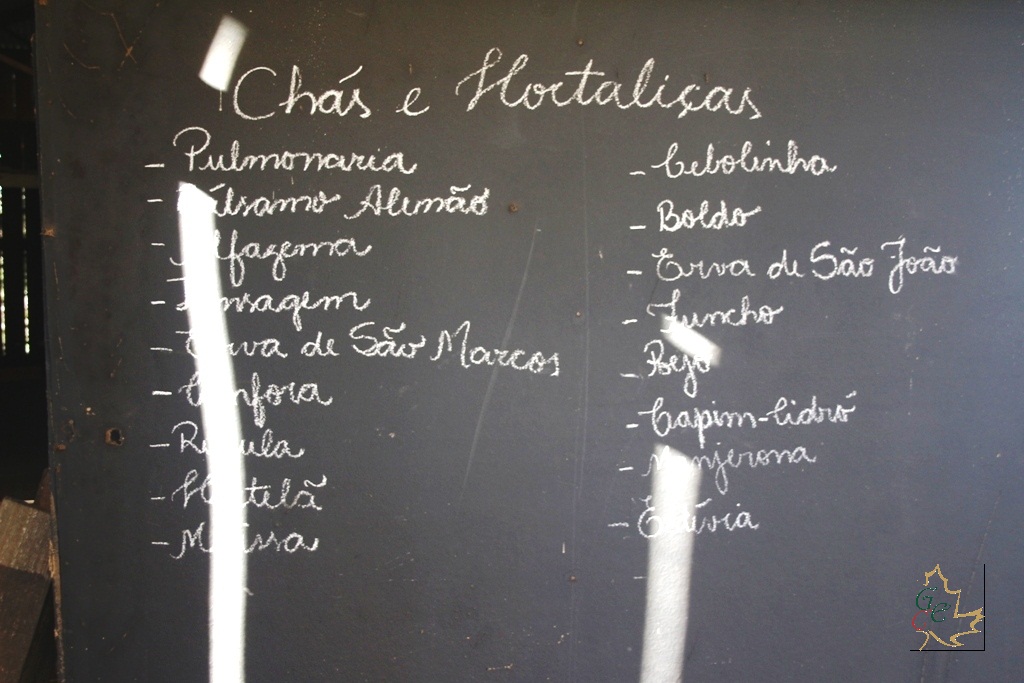 Chás e Hortaliças
- Pulmonaria
- Bálsamo Alemão
- Alfazema
- Tansagem
- Erva de São Marcos
- Cânfora
- Rúcula
- Hortelã
- Melissa
- Cebolinha
- Boldo
- Erva de São João
- Funcho
- Poejo
- Capim-Cidró
- Manjerona
- Estévia
-